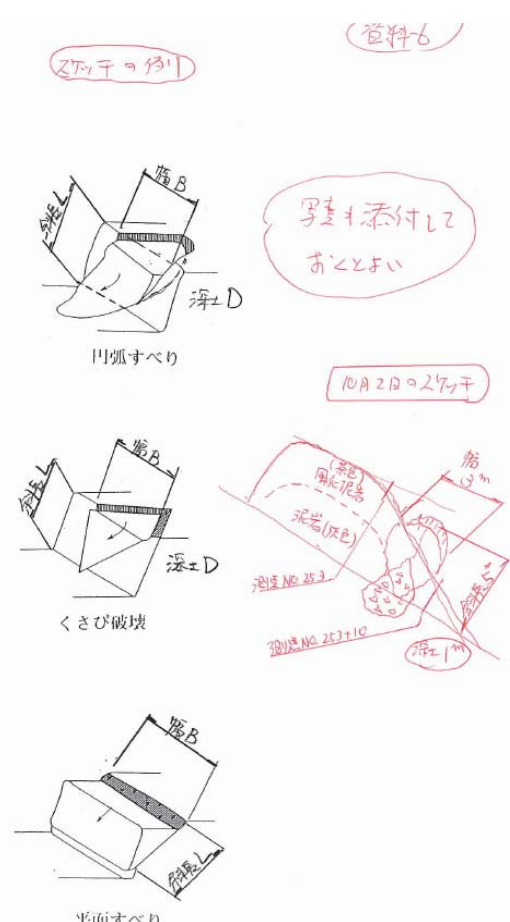 資料-6
スケッチの例
幅B
斜長L
深土D
円弧すべり
写真も添付して
おくとよい
10月2日のスケッチ
幅B
斜長L
深土D
くさび破壊
幅
3m
(茶色)
風化泥岩
泥岩(灰色)
測点NO.253
測点NO.253+10
斜長5m
深土1m
幅B
斜長L
平面すべり